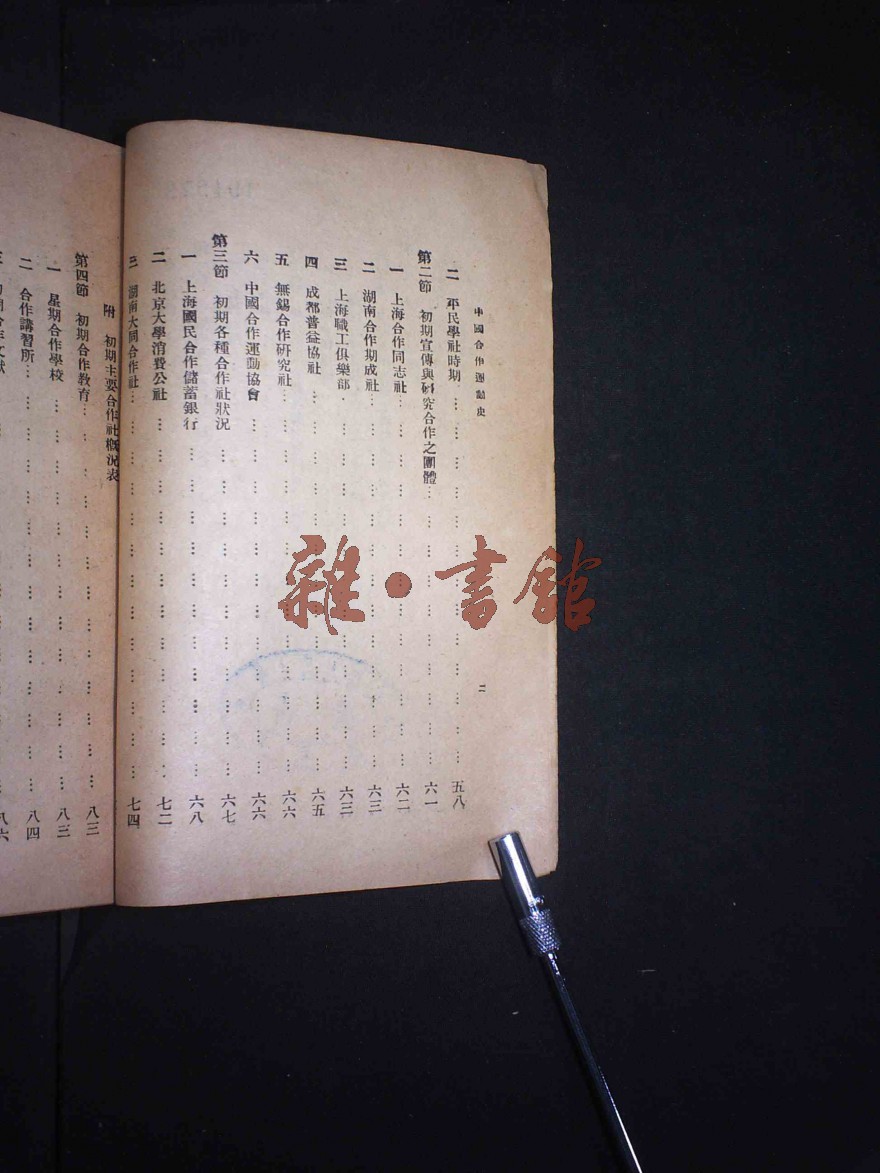 中國合作運動史
二
二 平民學社時期 五八
第二節 初期宣傳與研究合作之團體 六一
一 上海合作同志社 六二
二 湖南合作期成社 六三
三 上海職工俱樂部 六三
四 成都普益協社 六五
五 無錫合作研究社 六六
六 中國合作運動協會 六六
第三節 初期各種合作社狀況 六七
一 上海國民合作儲蓄銀行 六八
二 北京大學消費公社 七二
三 湖南大同合作社 七四
附 初期主要合作社概況表
第四節 初期合作教育 八三
一 星期合作學校 八三
二 合作講習所 八四
八六
雜·書館